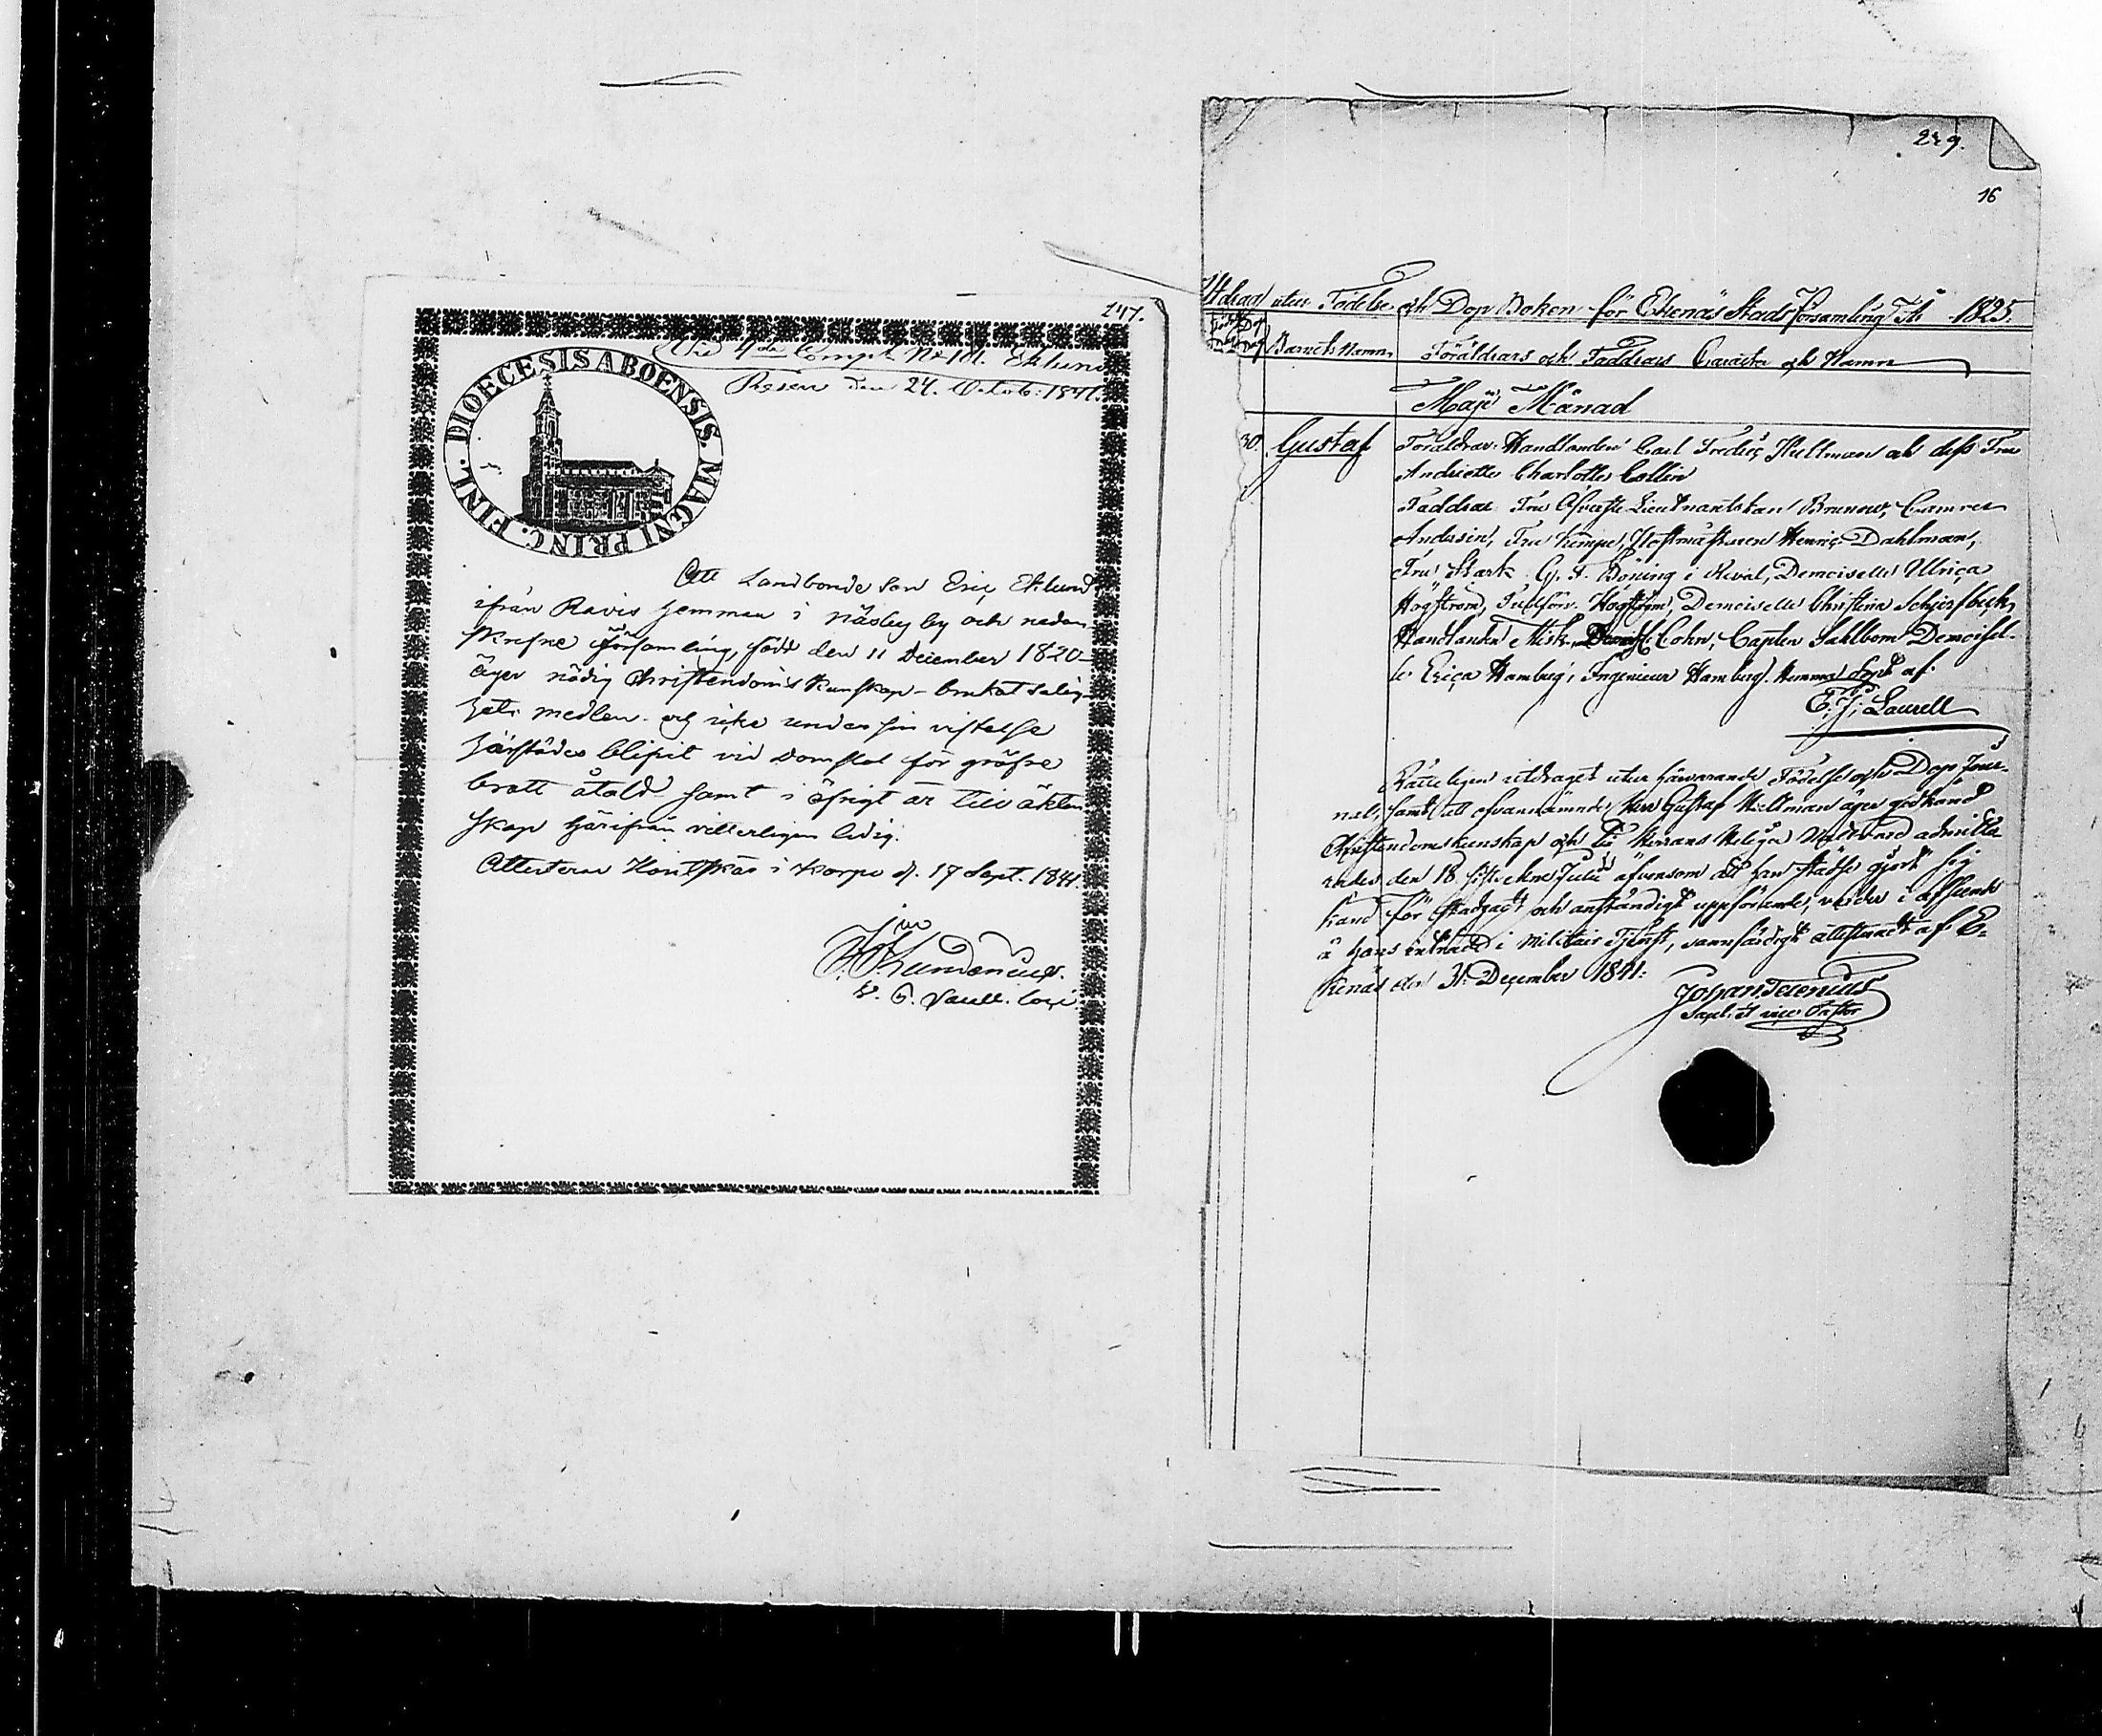 247.
Vid 4de Comp. No 101. Eklund
den 24. Octob: 1841.
DIOECESIS ABOENSIS. MAGNI PRINC. FINL.
Att Landbonde Son Eric Eklund
ifrån Ravis hemman i Näsby by och nedan
skrefne församling, född den 11 December 1820
äger nödig Christendoms kunskap – brukat Salig-
hets medlen och icke under sin vistelse
härstädes blifvit vid Domstol för gröfre
brott åtald – samt i öfrigt är till äkten-
skap härifrån vitterligen ledig.
Attesterar Houtskär i Korpo d. 17 Sept. 1841.
249.
16
Utdrag utur Födelse och Dop Boken för Ekenäs Stads Församling År 1825.
Barnets Namn Föräldrars och Faddrars Caracter och Namn
Maji Månad
30. Gustaf Föräldrar: Handlanden Carl Fredric Hultman och dess Fru
Charlotta Collin
Faddrar: Fru Öfverste Lieutnantskan Brunow,
Fru Hofmästaren Henric Dahlman,
Fru Stark, G. F. Böning i Reval, Demoiselle Ulrica
Högström, Högström, Demoiselle Christina
Handlanden Cohn, Capten Sahlbom Demoisel-
le Erica Hamberg, Ingenieur Hamberg. döpt af
E. J. Laurell
Rätteligen utdraget utur härvarande Födelse och Dop Jour-
nal, samt att ofvannämnde Herr Gustaf Hultman äger godkänd
Christendomskunskap och till Herrans Heliga Nattvard admitte-
rades den 18 Julii äfvensom att han städse gjort sig
känd för stadgadt och anständigt uppförande, varder i afseende
å hans inträde i Militair Tjenst, sannfärdigt attesteradt af E-
kenäs den 31. December 1841.
Johan Terenius
Sacell. et vice Pastor